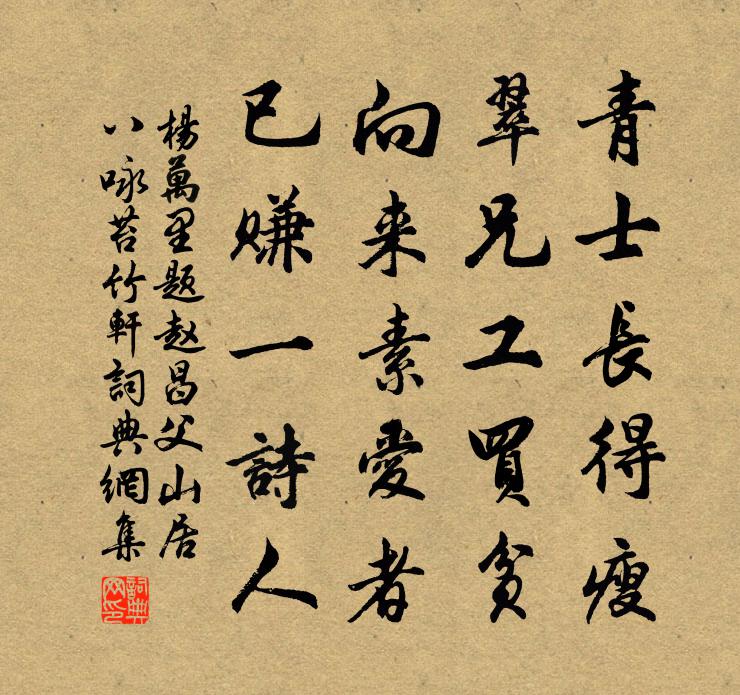 青士長得瘦
翠兄工買貧
向来素愛者
已赚一詩人
楊萬里題赵昌父山居
八咏苔竹軒詞典網集
詞典
网印